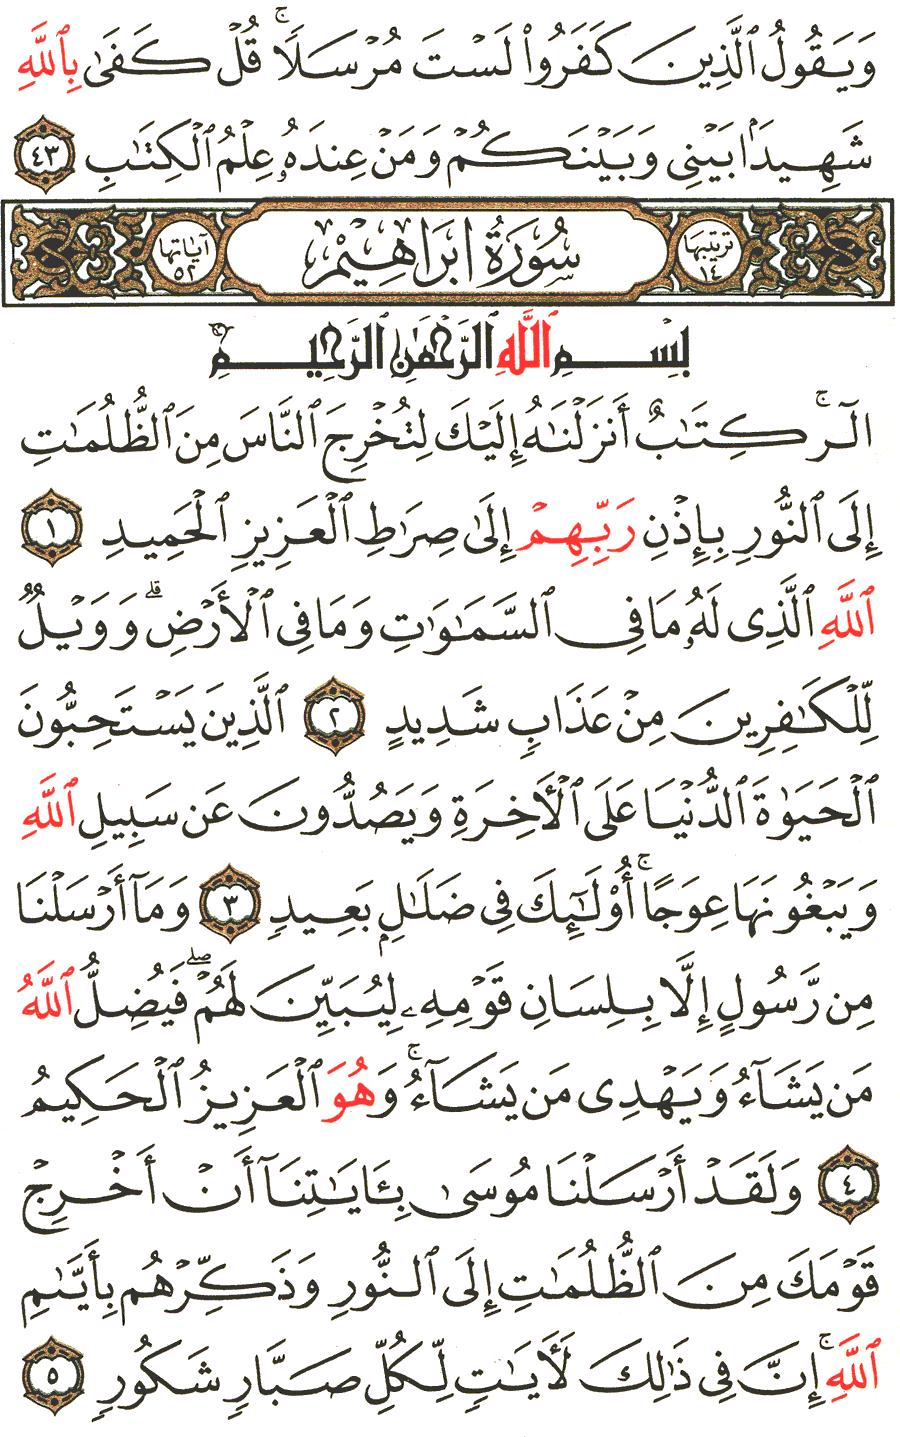 وَيَقُولُ ٱلَّذِينَ كَفَرُوا۟ لَسْتَ مُرْسَلًا ۚ قُلْ كَفَىٰ بِٱللَّهِ
شَهِيدًۢا بَيْنِى وَبَيْنَكُمْ وَمَنْ عِندَهُۥ عِلْمُ ٱلْكِتَٰبِ ٤٣
ترتيبها ١٤ سُورَةُ ابْرَاهِيْمْ آياتها ٥٢
بِسْمِ ٱللَّهِ ٱلرَّحْمَٰنِ ٱلرَّحِيمِ
الٓر ۚ كِتَٰبٌ أَنزَلْنَٰهُ إِلَيْكَ لِتُخْرِجَ ٱلنَّاسَ مِنَ ٱلظُّلُمَٰتِ
إِلَى ٱلنُّورِ بِإِذْنِ رَبِّهِمْ إِلَىٰ صِرَٰطِ ٱلْعَزِيزِ ٱلْحَمِيدِ ١
ٱللَّهِ ٱلَّذِى لَهُۥ مَا فِى ٱلسَّمَٰوَٰتِ وَمَا فِى ٱلْأَرْضِ ۗ وَوَيْلٌ
لِّلْكَٰفِرِينَ مِنْ عَذَابٍ شَدِيدٍ ٢ ٱلَّذِينَ يَسْتَحِبُّونَ
ٱلْحَيَوٰةَ ٱلدُّنْيَا عَلَى ٱلْأَخِرَةِ وَيَصُدُّونَ عَن سَبِيلِ ٱللَّهِ
وَيَبْغُونَهَا عِوَجًا ۚ أُو۟لَٰٓئِكَ فِى ضَلَٰلٍۭ بَعِيدٍ ٣ وَمَآ أَرْسَلْنَا
مِن رَّسُولٍ إِلَّا بِلِسَانِ قَوْمِهِۦ لِيُبَيِّنَ لَهُمْ ۖ فَيُضِلُّ ٱللَّهُ
مَن يَشَآءُ وَيَهْدِى مَن يَشَآءُ ۚ وَهُوَ ٱلْعَزِيزُ ٱلْحَكِيمُ
٤ وَلَقَدْ أَرْسَلْنَا مُوسَىٰ بِـَٔايَٰتِنَآ أَنْ أَخْرِجْ
قَوْمَكَ مِنَ ٱلظُّلُمَٰتِ إِلَى ٱلنُّورِ وَذَكِّرْهُم بِأَيَّىٰمِ
ٱللَّهِ ۚ إِنَّ فِى ذَٰلِكَ لَأَيَٰتٍ لِّكُلِّ صَبَّارٍ شَكُورٍ ٥